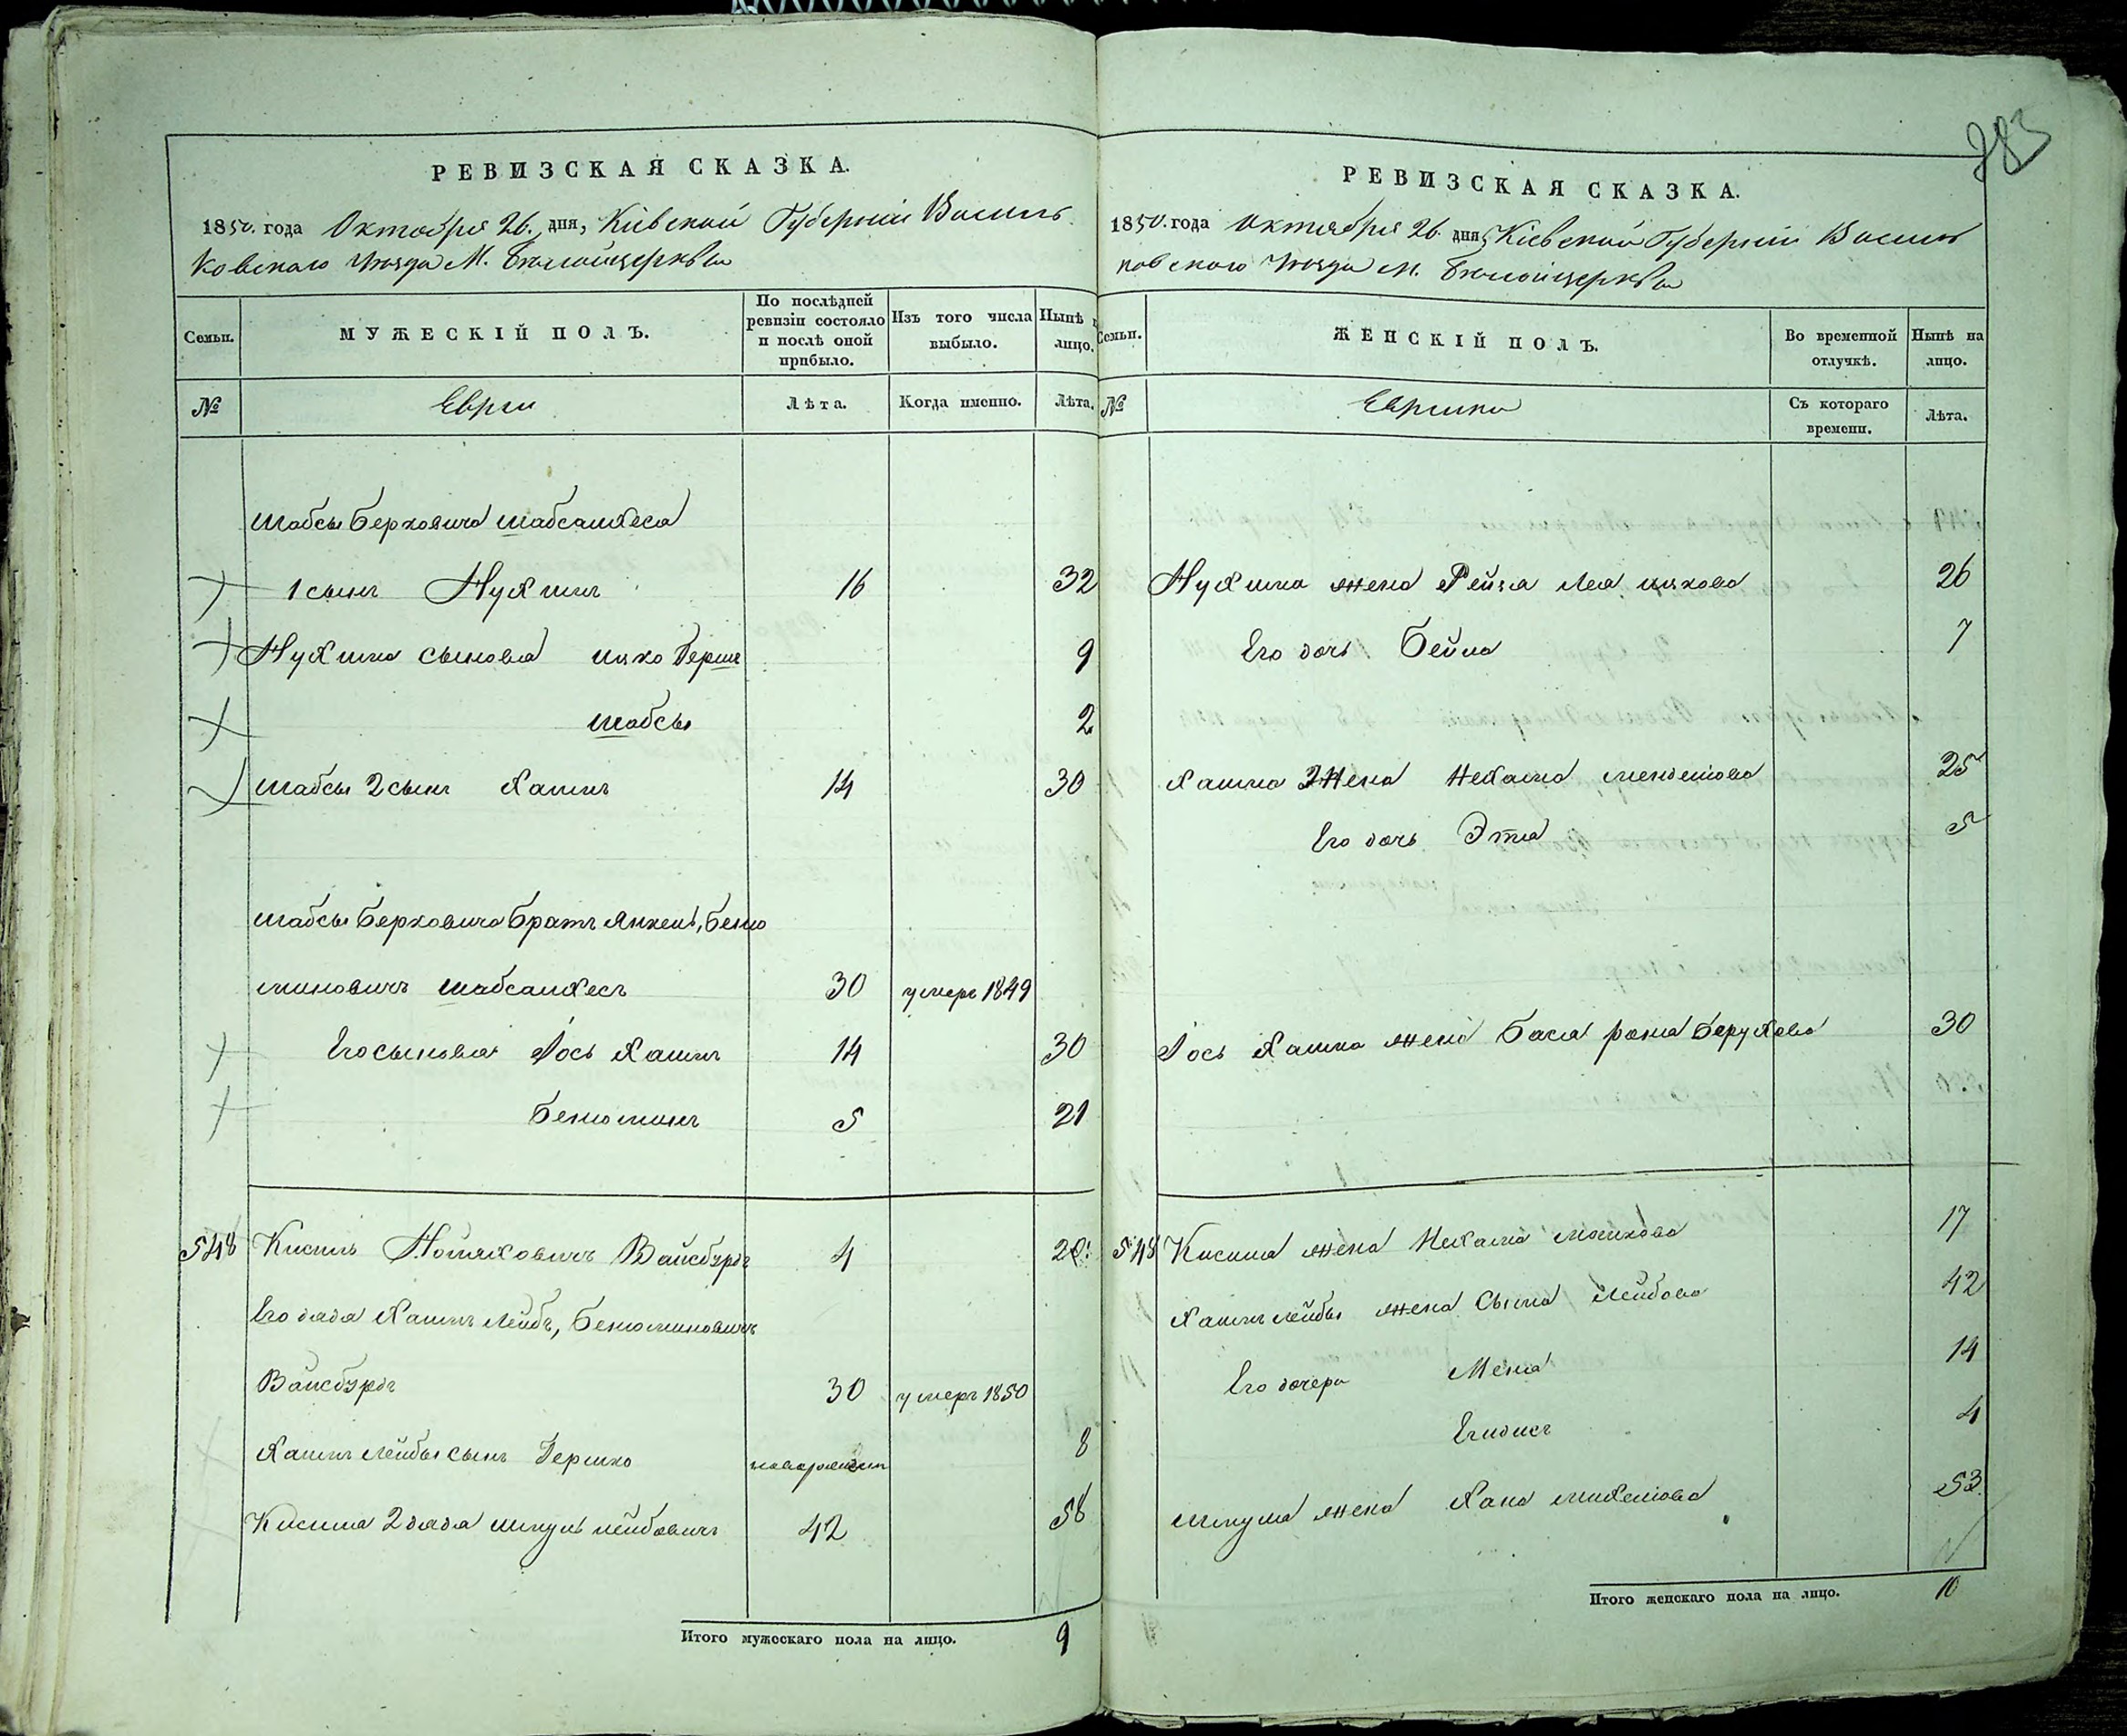 383
РЕВИЗСКАЯ СКАЗКА.
1850. года Октября 26. дня, Кіевской Губерніи Василь
ковскаго Уѣзда М. Бѣлойцеркви
Семьи.
МУЖЕСКІЙ ПОЛЪ.
По послѣдней ревизіи состояло и послѣ оной прибыло.
Изъ того числа выбыло.
Нынѣ на лицо.
№
Евреи
Лѣта.
Когда именно.
Лѣта.
Шабсы Берковича Шабсамхеса
1 сынъ Нухимъ 16 32
Нухима сыновья Ицко Герш 9
Шабсы 2
Шабсы 2 сынъ Хаимъ 14 30
Шабсы Берковича братъ Янкель, Беню
миновичъ Шабсамхесъ 30 умеръ 1849
Его сыновья Іось Хаимъ 14 30
Беньюминъ 5 21
548 Кисиль Нотяховичъ Вайсбургъ 4 20.
Его дядя Хаимъ Лейбъ, Беньюминовичъ
Вайсбургъ 30 умеръ 1850
Хаимъ Лейбы сынъ Гершко новорожден 8
Кисиля 2 дядя Шмуль Лейбовичъ 42 58
Итого мужескаго пола на лицо. 9
РЕВИЗСКАЯ СКАЗКА.
1850. года Октября 26. дня, Кіевской Губерніи Василь
ковскаго Уѣзда М. Бѣлойцеркви
Семьи.
ЖЕНСКІЙ ПОЛЪ.
Во временной отлучкѣ.
Нынѣ на лицо.
№
Еврейки
Съ котораго времени.
Лѣта.
Нухима жена Рейзя Лея Ицкова 26
Его дочь Бейла 7
Хаима жена Нехама Менделіова 25
Его дочь Этя 5
Іось Хаима жена Бася рожа Берухова 30
548 Кисиля жена Нехама Мошкова 17
Хаимъ Лейбы жена Сыма Лейбова 42
Его дочери Меня 14
4
Шмуля жена Хана Михелiова 53.
Итого женскаго пола на лицо. 10